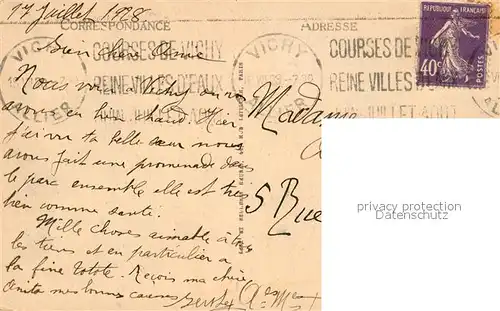 17 Juillet 1928
CORRESPONDANCE
ADRESSE
VICHY
ALLIER
COURSES DE VICHY
REINE VILLES D'EAUX
JUIN JUILLET AOUT
VICHY
COURSES DE VICHY
REINE VILLES D'EAUX
JUIN JUILLET AOUT
REPUBLIQUE FRANÇAISE
40c
POSTES
Bien chère Amie
Nous
Vichy
avons
chaud. Hier
j'ai vu ta belle sœur nous
avons fait une promenade dans
le parc ensemble elle est très
bien comme santé.
Mille choses aimable à tous
les tiens et en particulier a
la fine totote. Reçois ma chère
Anita mes bonnes
Madame
5 Rue
privacy protection
Datenschutz